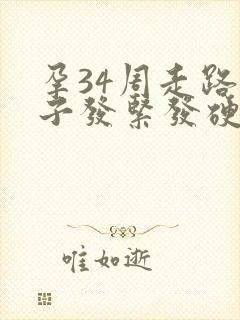 孕34周走路
子發緊發硬
唯如逝